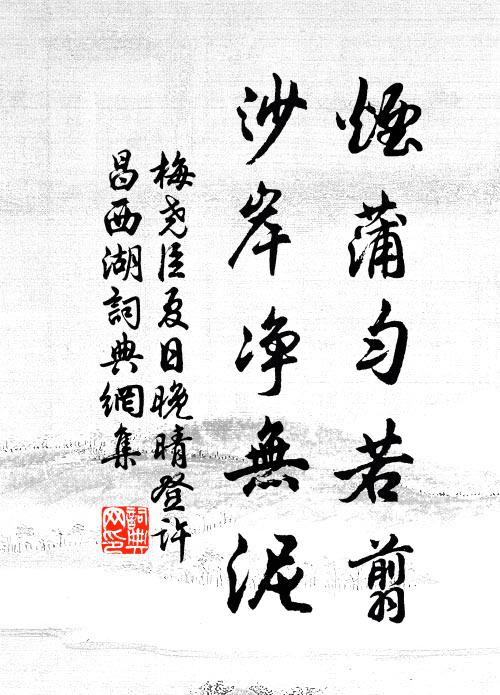 煙蒲匀若翦
沙岸净無泥
梅堯臣夏日晚晴登許
昌西湖詞典網集
詞典网